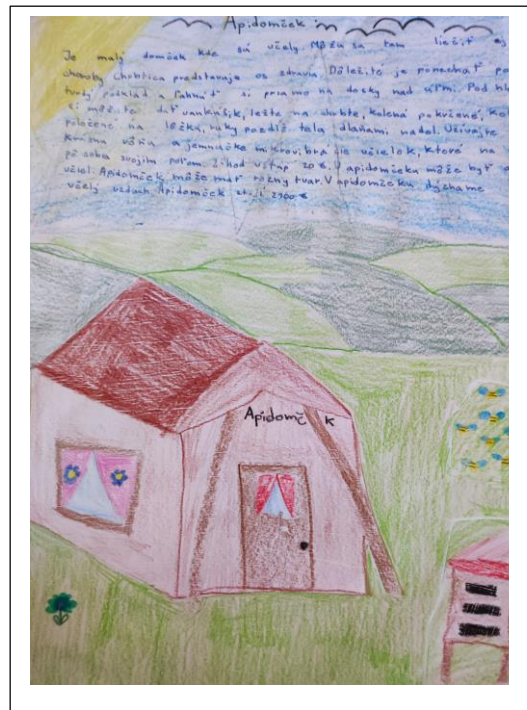 Apidomček
Je malý domček kde sú včely. Môžu sa tam liečiť aj
choroby Chrbtica predstavuje os zdravia. Dôležité je ponechať
tvrdý podklad a ľahnúť si priamo na dosky nad úľmi. Pod
si môžete dať vankúšik, ležte na chrbte, kolená pokrčené,
položené na lôžku, ruky pozdĺž tela dlaňami nadol. Užívajte
vôňa a jemnučké mikrovibrácie včielok, ktoré na
pôsobia svojím poľom. 1.hod vstup 20 €. V apidomčeku môže byť
včiel. Apidomček môže mať rôzny tvar. V apidomčeku dýchame
včelý vzduch. Apidomček stojí 2900 €
Apidomč k